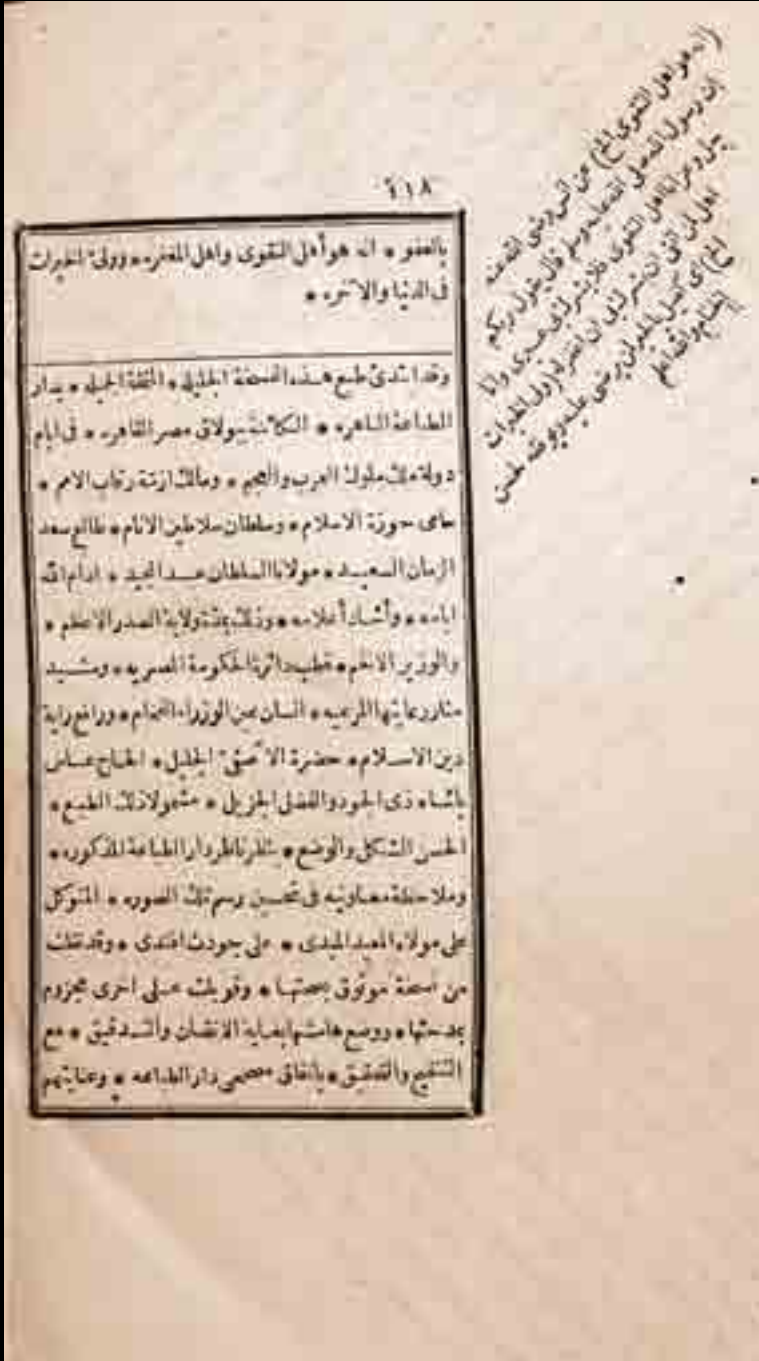 ٦١٨
بالعفو * انه هو أهل التقوى واهل المغفره * وولى الخيرات
فى الدنيا والآخره *
وقد ابتدئ طبع هذه النسخة الجليله * التحفة الجميله * بدار
الطباعة الباهره * الكائنة ببولاق مصر القاهره * فى ايام
دولة ملك ملوك العرب والعجم * ومالك ازمة رقاب الامم *
حامى حوزة الاسلام * وسلطان سلاطين الانام * طالع سعد
الزمان السعيد * مولانا السلطان عبد المجيد * ادام الله
ايامه * وأشاد أعلامه * وذلك بمدة ولاية الصدر الاعظم *
والوزير الافخم * قطب دائرة الحكومة المصريه * ومشيد
منار رعايتها المرعيه * انسان عين الوزراء الفخام * ورافع راية
دين الاسلام * حضرة الآصفى الجليل * الحاج عباس
باشا * ذى الجود والفضل الجزيل * مشمولا ذلك الطبع *
الحسن الشكل والوضع * بنظر ناظر دار الطباعة المذكوره *
وملاحظة معاونيه فى تحسين رسم تلك الصوره * المتوكل
على مولاه المعيد المبدى * على جودت افندى * وقد نقلت
من نسخة موثوق بصحتها * وقوبلت على اخرى مجزوم
بمدحتها * ووضع هامشها بغاية الاتقان والتدقيق * مع
التنقيح والتحقيق * باتفاق مصححى دار الطباعه * وعنايتهم
(انه هو اهل التقوى الخ) عن انس رضى الله عنه
ان رسول الله صلى الله عليه وسلم قال يقول ربكم
جل وعز انا اهل التقوى فلا يشرك بى عبدى وانا
اهل لمن اتقى ان يشرك بى ان اغفر له (ولى الخيرات
الخ) اى كفيل بالخير لمن يرضى عليه ويوفقه لحسن
الختام والله اعلم